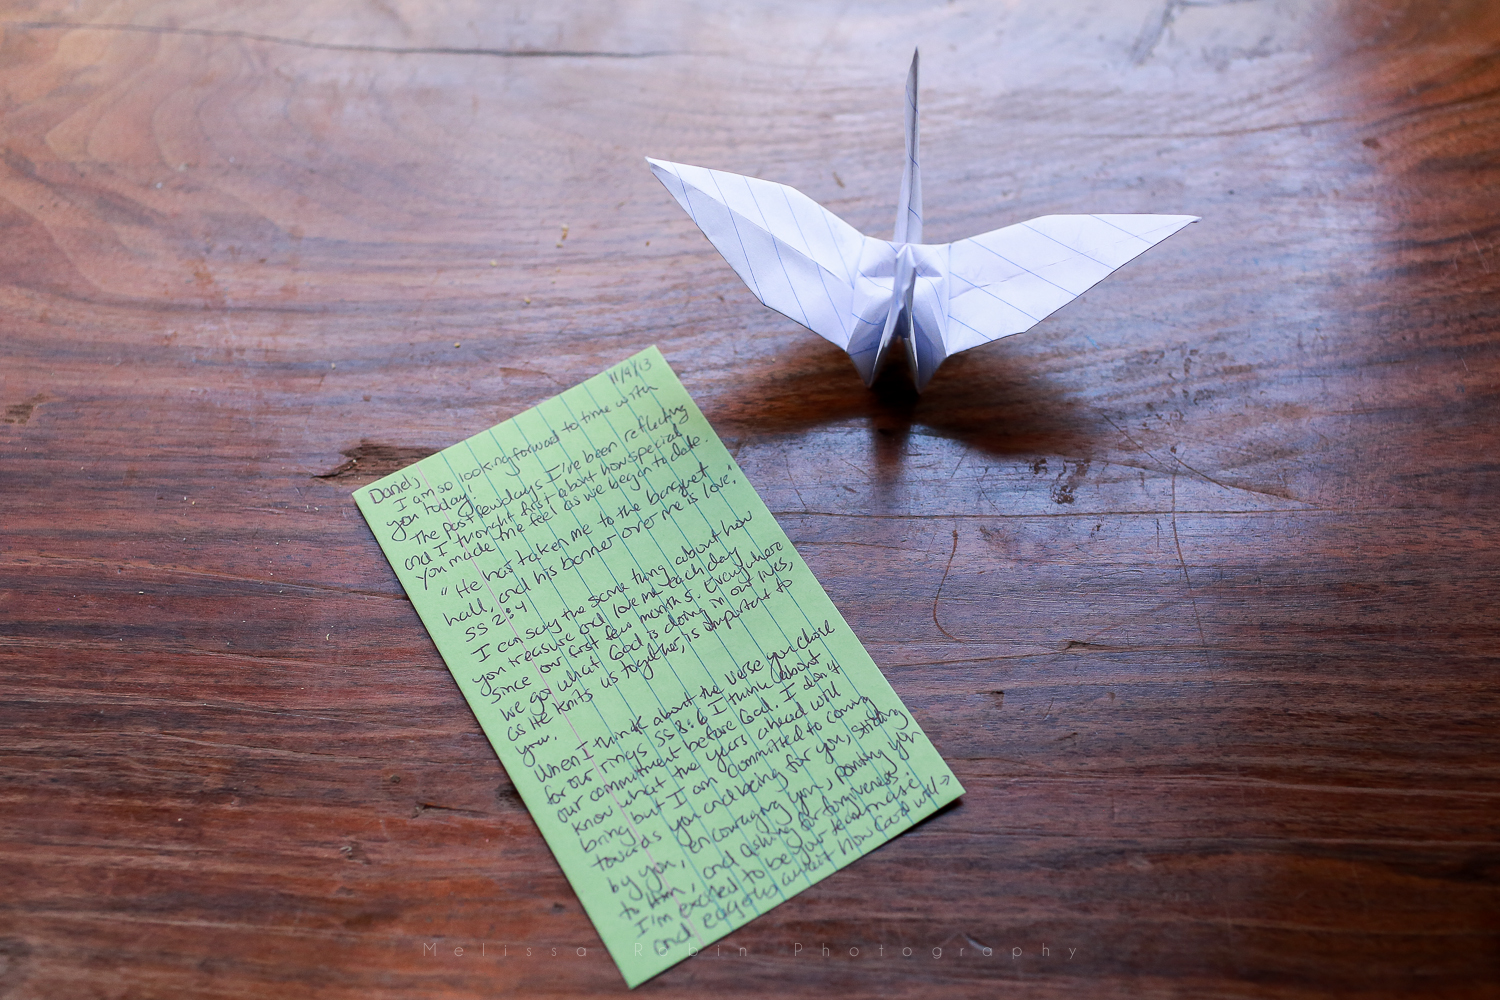 11/9/13
Daniel,
I am so looking forward to time with
you today!
The past few days I've been reflecting
and I thought first about how special
you made me feel as we began to date.
"He has taken me to the banquet
hall, and his banner over me is love."
SS 2:4
I can say the same thing about how
you treasure and love me each day
since our first few months. Everywhere
we go, what God is doing in our lives,
as He knits us together, is important to
you.
When I think about the verse you chose
for our rings SS 8:6 I think about
our commitment before God. I don't
know what the years ahead will
bring but I am committed to coming
towards you and being for you, sticking
by you, encouraging you, pointing you
to Him, and asking for forgiveness.
I'm excited to be your teammate
and eagerly await how God will →
Melissa Robin Photography